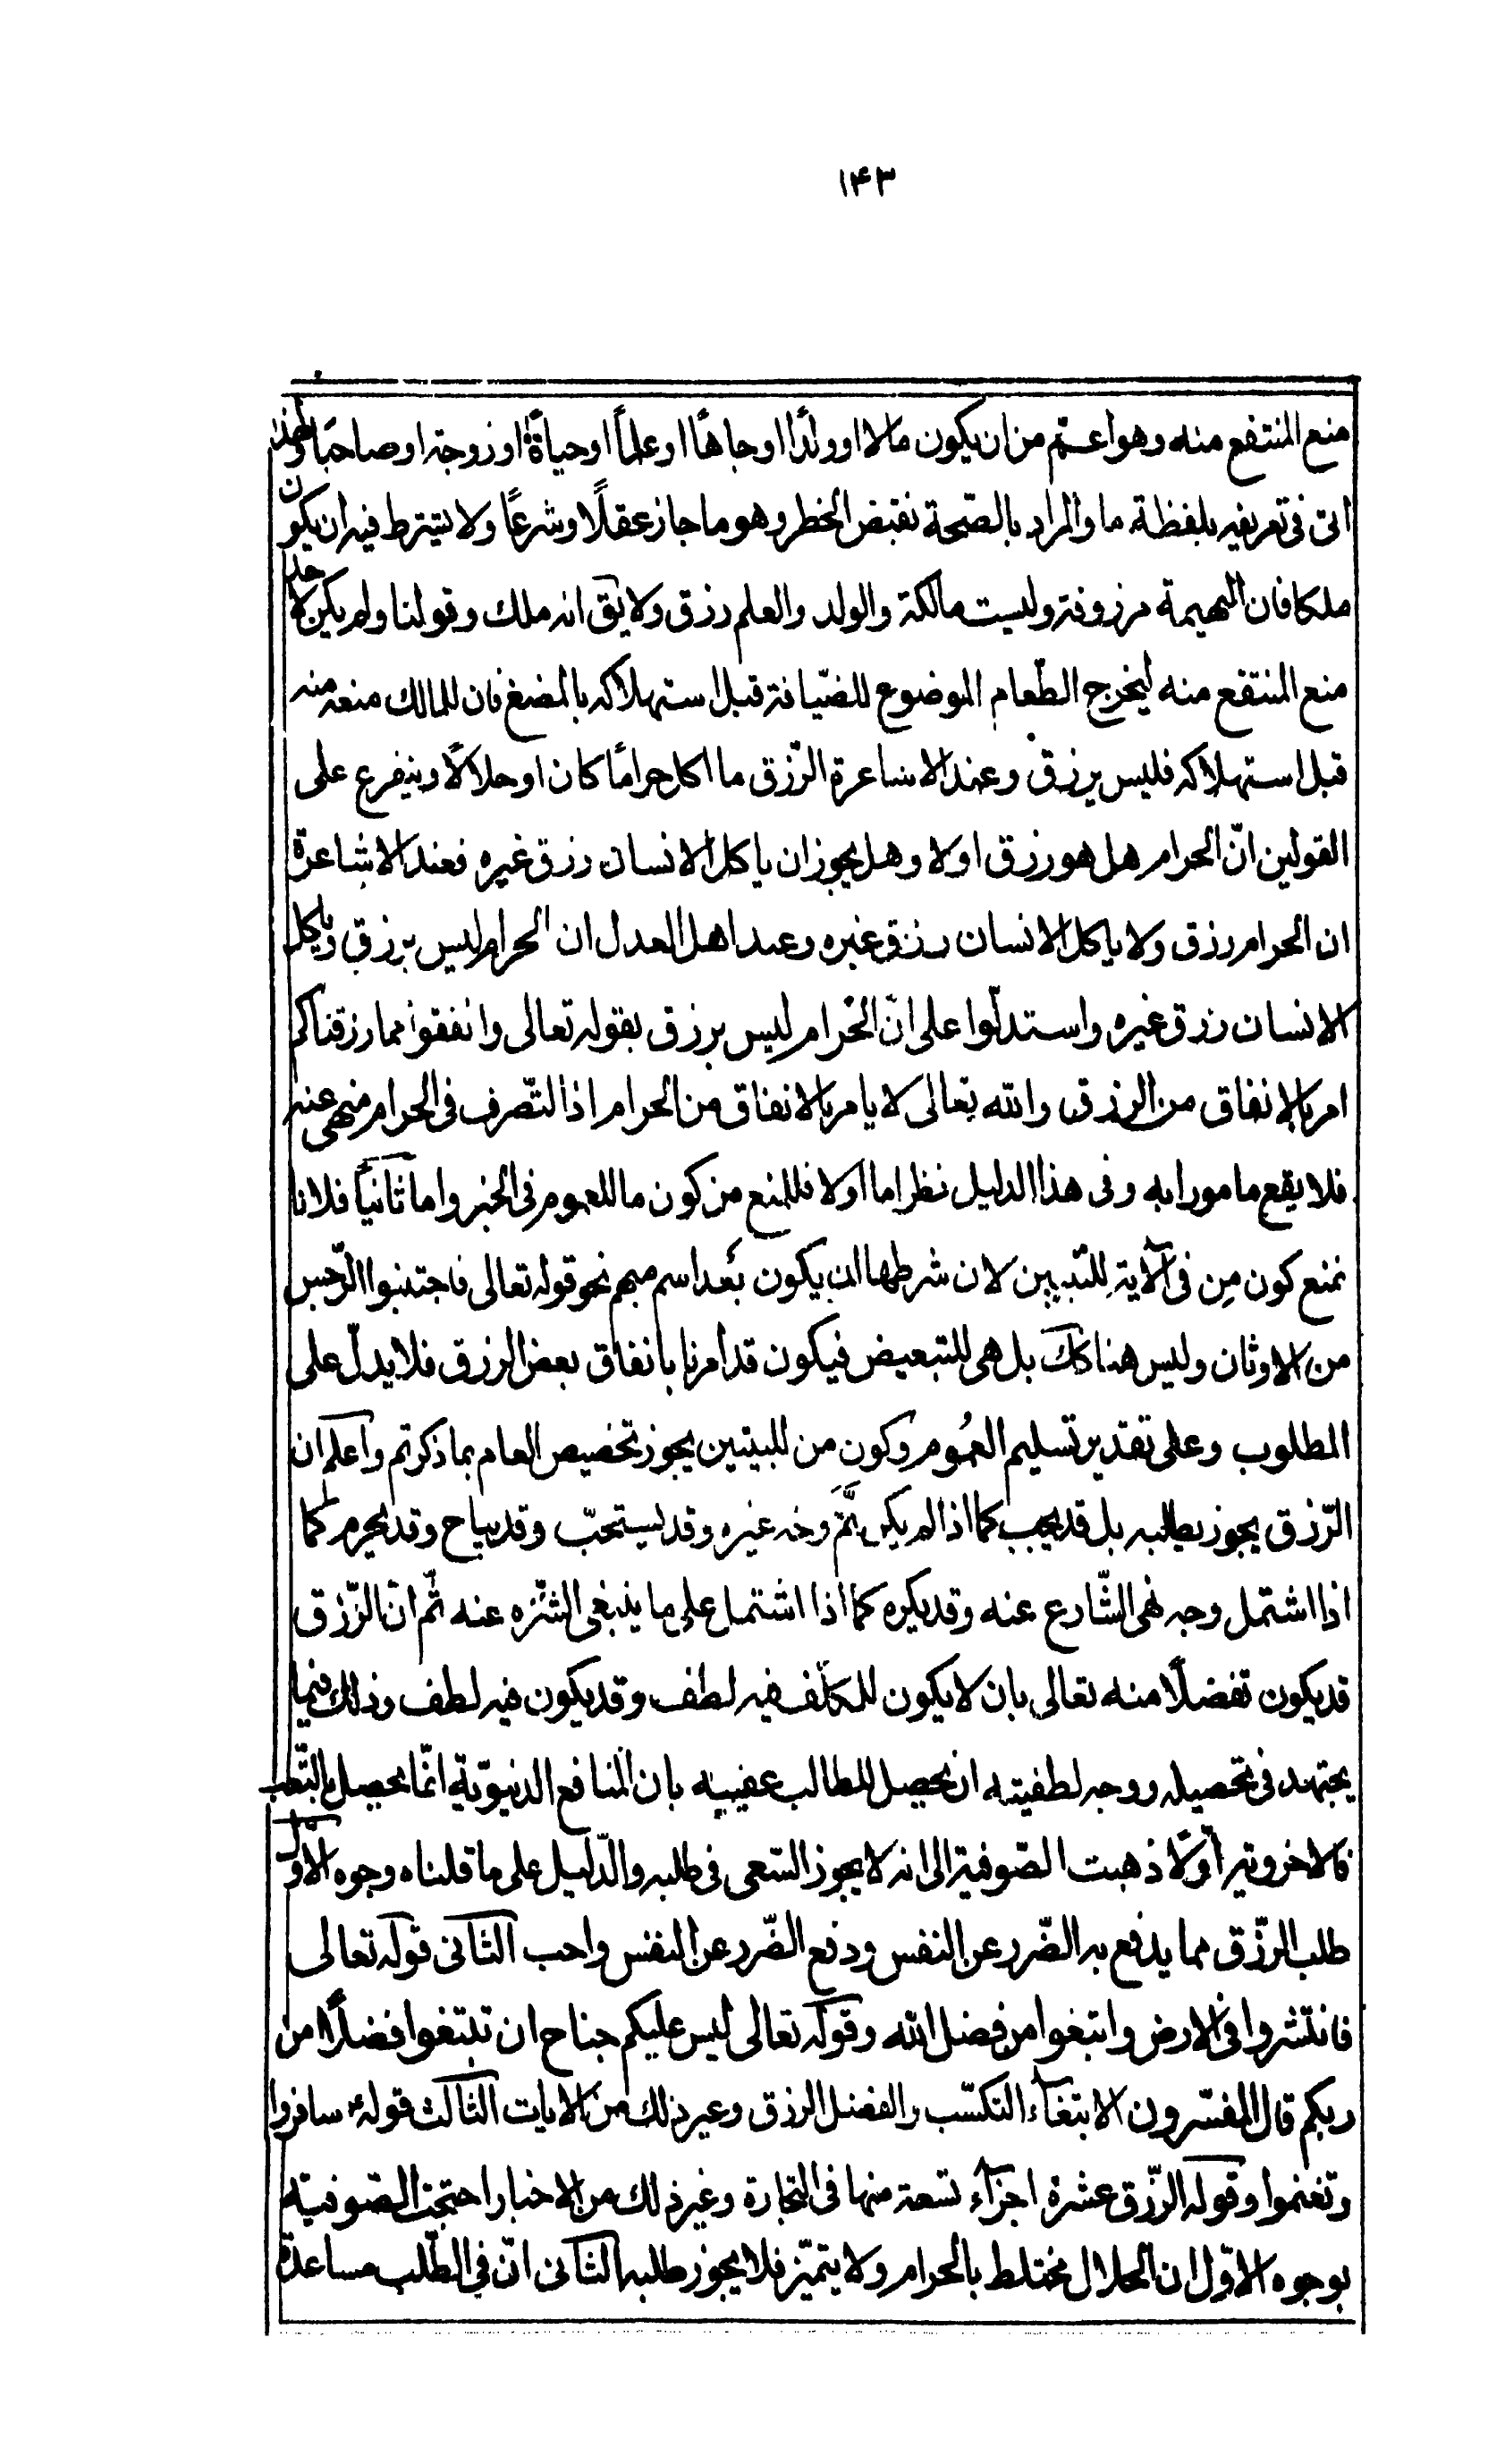 ۱۴۳
منع المنتفع منه وهو اعمّ من ان يكون مالا او ولدًا او جاهًا او علمًا او حياةً او زوجة او صاحبًا ولهذا
اتى فى تعريفه بلفظة ما والمراد بالصّحة نقيض الخطر وهو ما جاز عقلًا وشرعًا ولا يشترط فيه ان يكون
ملكا فان البهيمة مرزوقة وليست مالكة والولد والعلم رزق ولا يقٓ انه ملك وقولنا ولم يكن لاحد
منع المنتفع منه ليخرج الطّعام الموضوع للضّيافة قبل استهلاكه بالمضغ فان للمالك منعه منه
قبل استهلاكه فليس برزق وعند الاشاعرة الرّزق ما اكل حرامًا كان او حلالًا ويتفرع على
القولين انّ الحرام هل هو رزق اولا وهل يجوز ان ياكل الانسان رزق غيره فعند الاشاعرة
ان الحرام رزق ولا ياكل الانسان رزق غيره وعند اهل العدل ان الحرام ليس برزق وياكل
الانسان رزق غيره واستدلّوا على انّ الحرام ليس برزق بقوله تعالى وانفقوا مما رزقناكم
امر بالانفاق من الرزق والله تعالى لا يامر بالانفاق من الحرام اذ التّصرف فى الحرام منهى عنه
فلا يقع مامورا به وفى هذا الدليل نظر اما اولا فللمنع من كون ما للعموم فى الخبر واما ثانيًا فلانا
نمنع كون مِن فى الآية للتّبيين لان شرطها ان يكون بعد اسم مبهم نحو قوله تعالى فاجتنبوا الرّجس
من الاوثان وليس هنا كٓك بل هى للتبعيض فيكون قد أمرنا بانفاق بعض الرزق فلا يدلّ على
المطلوب وعلى تقدير تسليم العُموم وكون من للتبيين يجوز تخصيص العام بما ذكرتم واعلم ان
الرّزق يجوز طلبه بل قد يجب كما اذا لم يكن ثَمَّ وجه غيره وقد يستحبّ وقد يباح وقد يحرم كما
اذا اشتمل وجه نهى الشّارع عنه وقد يكره كما اذا اشتمل على ما ينبغى التنزّه عنه ثم انّ الرّزق
قد يكون تفضلًا منه تعالى بان لا يكون للمكلّف فيه لطف وقد يكون فيه لطف وذلك فيما
يجتهد فى تحصيله ووجه لطفيته ان يحصل للطالب عقيبه بان المنافع الدنيويّة انّما يحصل بالتّعب
فالاخروية اولًا ذهبت الصّوفية الى انه لا يجوز السّعى فى طلبه والدّليل على ما قلناه وجوه الاوّل
طلب الرزّق مما يدفع به الضّرر عن النفس ودفع الضّرر عن النفس واجب الثّانى قوله تعالى
فانتشروا فى الارض وابتغوا من فضل الله وقوله تعالى ليس عليكم جناح ان تبتغوا فضلًا من
ربكم قال المفسّرون الابتغآء التكسّب والفضل الرزق وغير ذلك من الايات الثّالث قولهؑ سافروا
وتغنموا وقوله الرّزق عشرة اجزآء تسعة منها فى التجارة وغير ذلك من الاخبار احتجت الصّوفيّة
بوجوه الاوّل ان الحلال مختلط بالحرام ولا يتميّز فلا يجوز طلبه الثّانى انّ فى الطّلب مساعدة